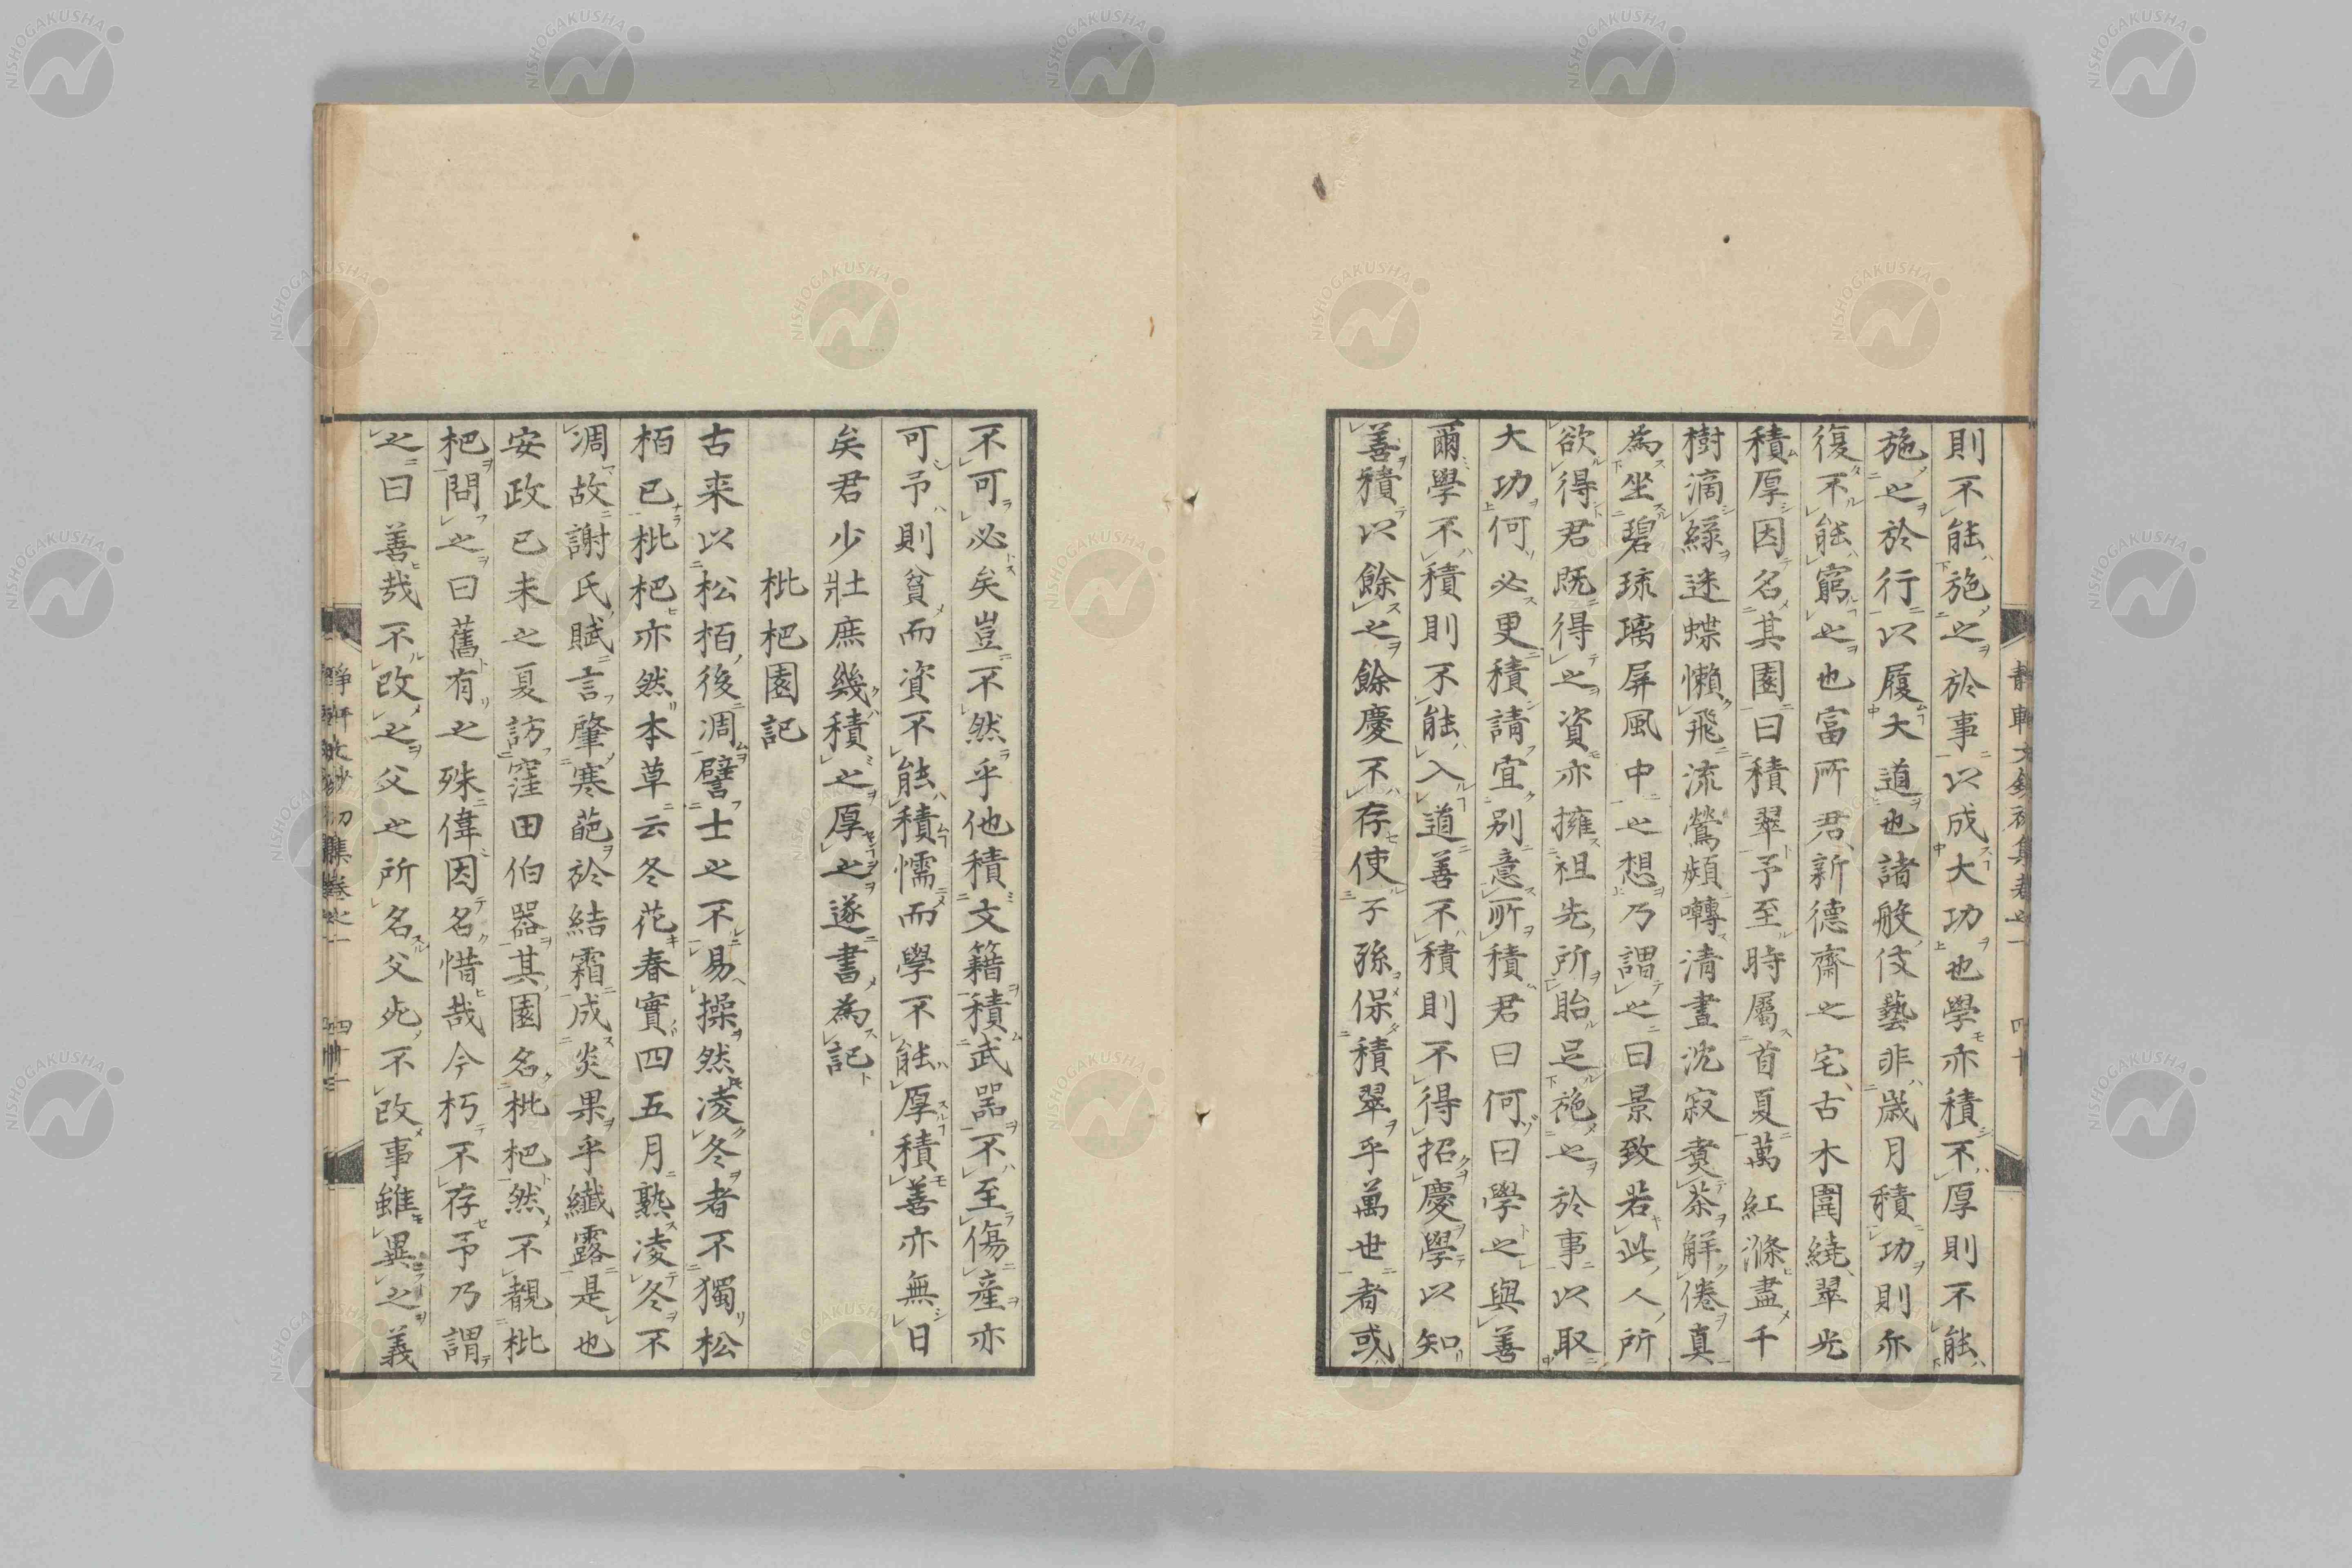 則不能施之於事以成大功也學亦積不厚則不能
施之於行以履大道也諸般伎藝非歲月積功則亦
復不能窮之也富所君新德齋之宅古木圍繞翠光
積厚因名其園曰積翠予至時屬首夏萬紅滌盡千
樹滴綠迷蝶懶飛流鶯頻囀清晝沈寂煑茶解倦真
為坐碧琉璃屏風中之想乃謂之曰景致若此人所
欲得君既得之資亦擁祖先所貽足施之於事以取
大功何必更積請宜別意所積君曰何曰學之與善
爾學不積則不能入道善不積則不得招慶學以知
善積以餘之餘慶不存使子孫保積翠乎萬世者或
不可必矣豈不然乎他積文籍積武器不至傷產亦
可予則貧而資不能積懦而學不能厚積善亦無日
矣君少壯庶幾積之厚之遂書為記
枇杷園記
古来以松栢後凋譬士之不易操然凌冬者不獨松
栢已枇杷亦然本草云冬花春實四五月熟凌冬不
凋故謝氏賦言肇寒葩於結霜成炎果乎纖露是也
安政已未之夏訪窪田伯器其園名枇杷然不覩枇
杷問之曰舊有之殊偉因名惜哉今朽不存予乃謂
之曰善哉不改之父之所名父死不改事雖異之義
靜軒文鈔初集卷之一 四十
NISHOGAKUSHA